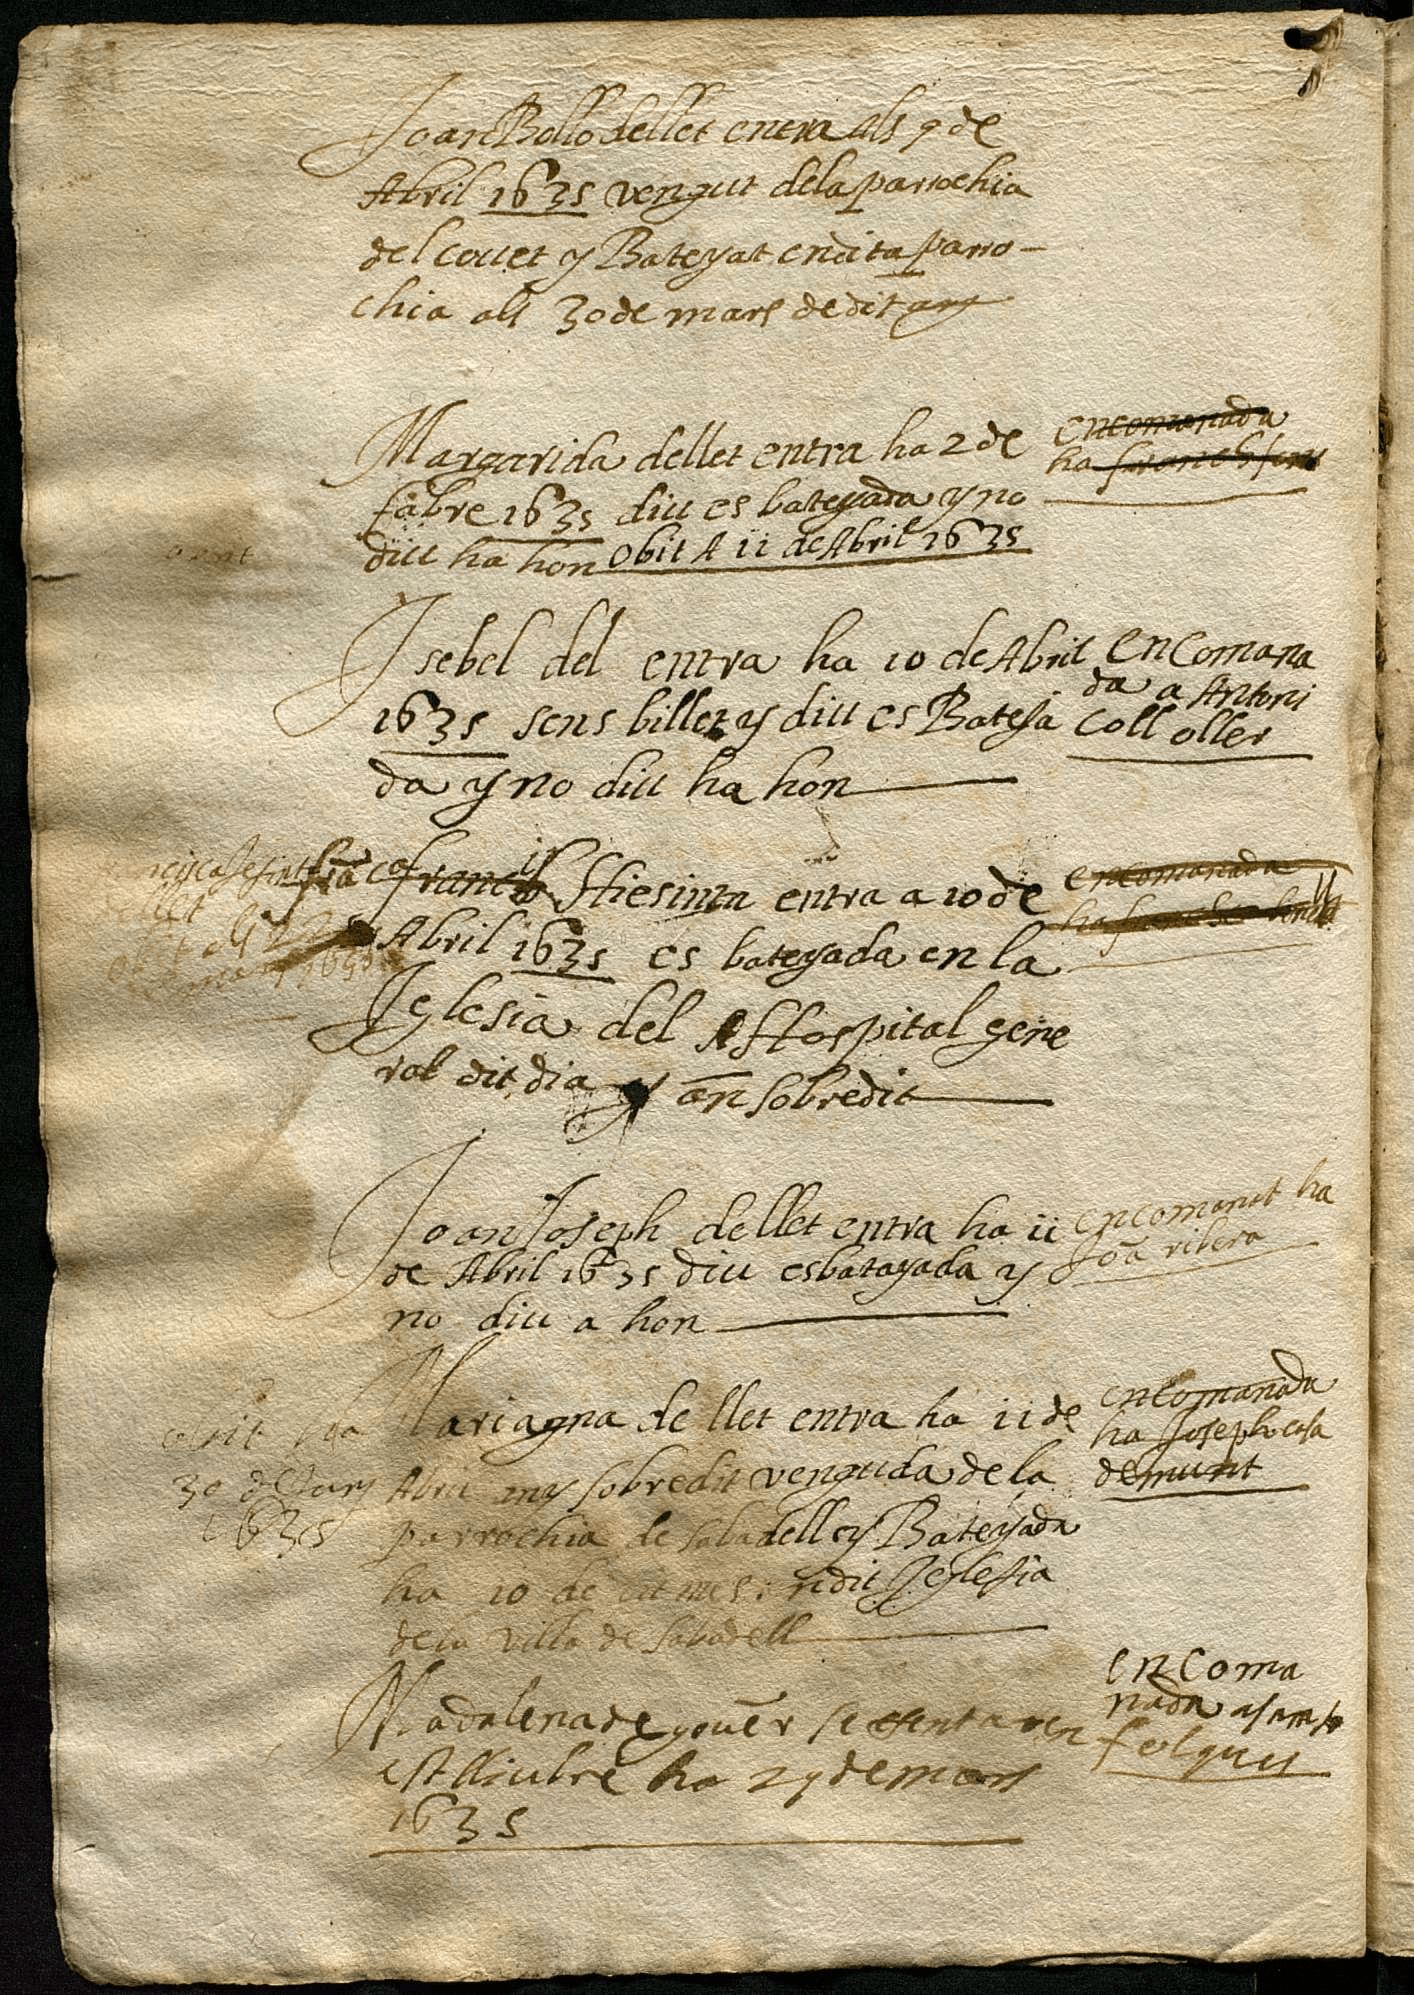 Joan Bollo dellet entra als 9 de
Abril 1635 vengut dela parrochia
del couet y Bateyat endita parro-
chia als 30 de mars de dit any
Margarida dellet entra ha 2 de
fabre 1635 diu es bateyada y no
diu ha hon obit A 11 de Abril 1635
encomanada
ha franch
Isebel del entra ha 10 de Abril
1635 sens billet y diu es Bateja
da y no diu ha hon
encomana
da a Antoni
coll oller
dellet
obit
1635
entra a 10 de
Abril 1635 es bateyada en la
Iglesia del Hospital gene
ral dit dia y an sobredit
encomanada
ha
Joan Joseph dellet entra ha 11
de Abril 1635 diu es batayada y
no diu a hon
encomanat ha
Joā ribera
Mariagna de llet entra ha 11 de
Abril any sobredit venguda de la
parrochia de sabadell y Bateyada
ha 10 de dit mes ndit Jglesia
dela villa de sabadell
obit
30 de
1635
encomanada
ha Joseph casa
demunt
Madalena de
ha 29 de mars
1635
encoma
nada
folques